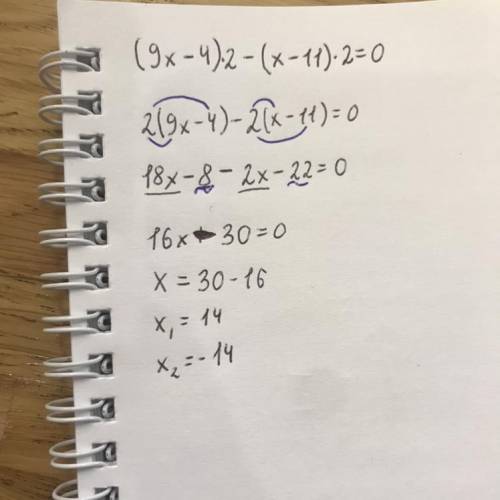 (9x-4)·2-(x-11)·2=0
2(9x-4)-2(x-11)=0
18x-8-2x-22=0
16x-30=0
x=30-16
x₁=14
x₂=-14